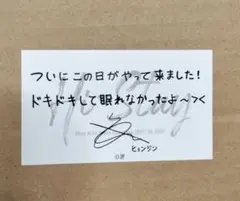 ついにこの日がやって来ました!
ドキドキして眠れなかったよ〜つく
Hi Stay
ヒョンジン